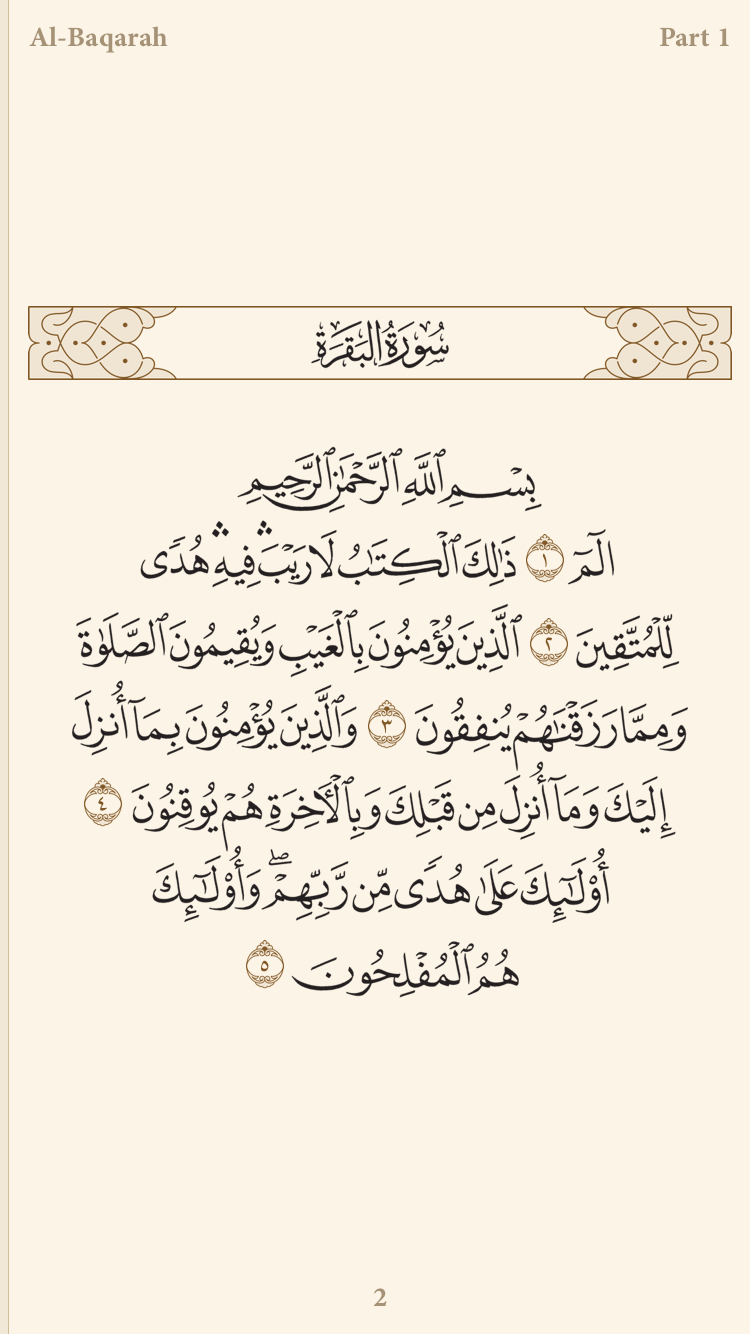 Al-Baqarah
Part 1
سُورَةُ البَقَرَةِ
بِسۡمِ ٱللَّهِ ٱلرَّحۡمَٰنِ ٱلرَّحِيمِ
الٓمٓ ١ ذَٰلِكَ ٱلۡكِتَٰبُ لَا رَيۡبَۛ فِيهِۛ هُدٗى
لِّلۡمُتَّقِينَ ٢ ٱلَّذِينَ يُؤۡمِنُونَ بِٱلۡغَيۡبِ وَيُقِيمُونَ ٱلصَّلَوٰةَ
وَمِمَّا رَزَقۡنَٰهُمۡ يُنفِقُونَ ٣ وَٱلَّذِينَ يُؤۡمِنُونَ بِمَآ أُنزِلَ
إِلَيۡكَ وَمَآ أُنزِلَ مِن قَبۡلِكَ وَبِٱلۡأٓخِرَةِ هُمۡ يُوقِنُونَ ٤
أُوْلَٰٓئِكَ عَلَىٰ هُدٗى مِّن رَّبِّهِمۡۖ وَأُوْلَٰٓئِكَ
هُمُ ٱلۡمُفۡلِحُونَ ٥
2